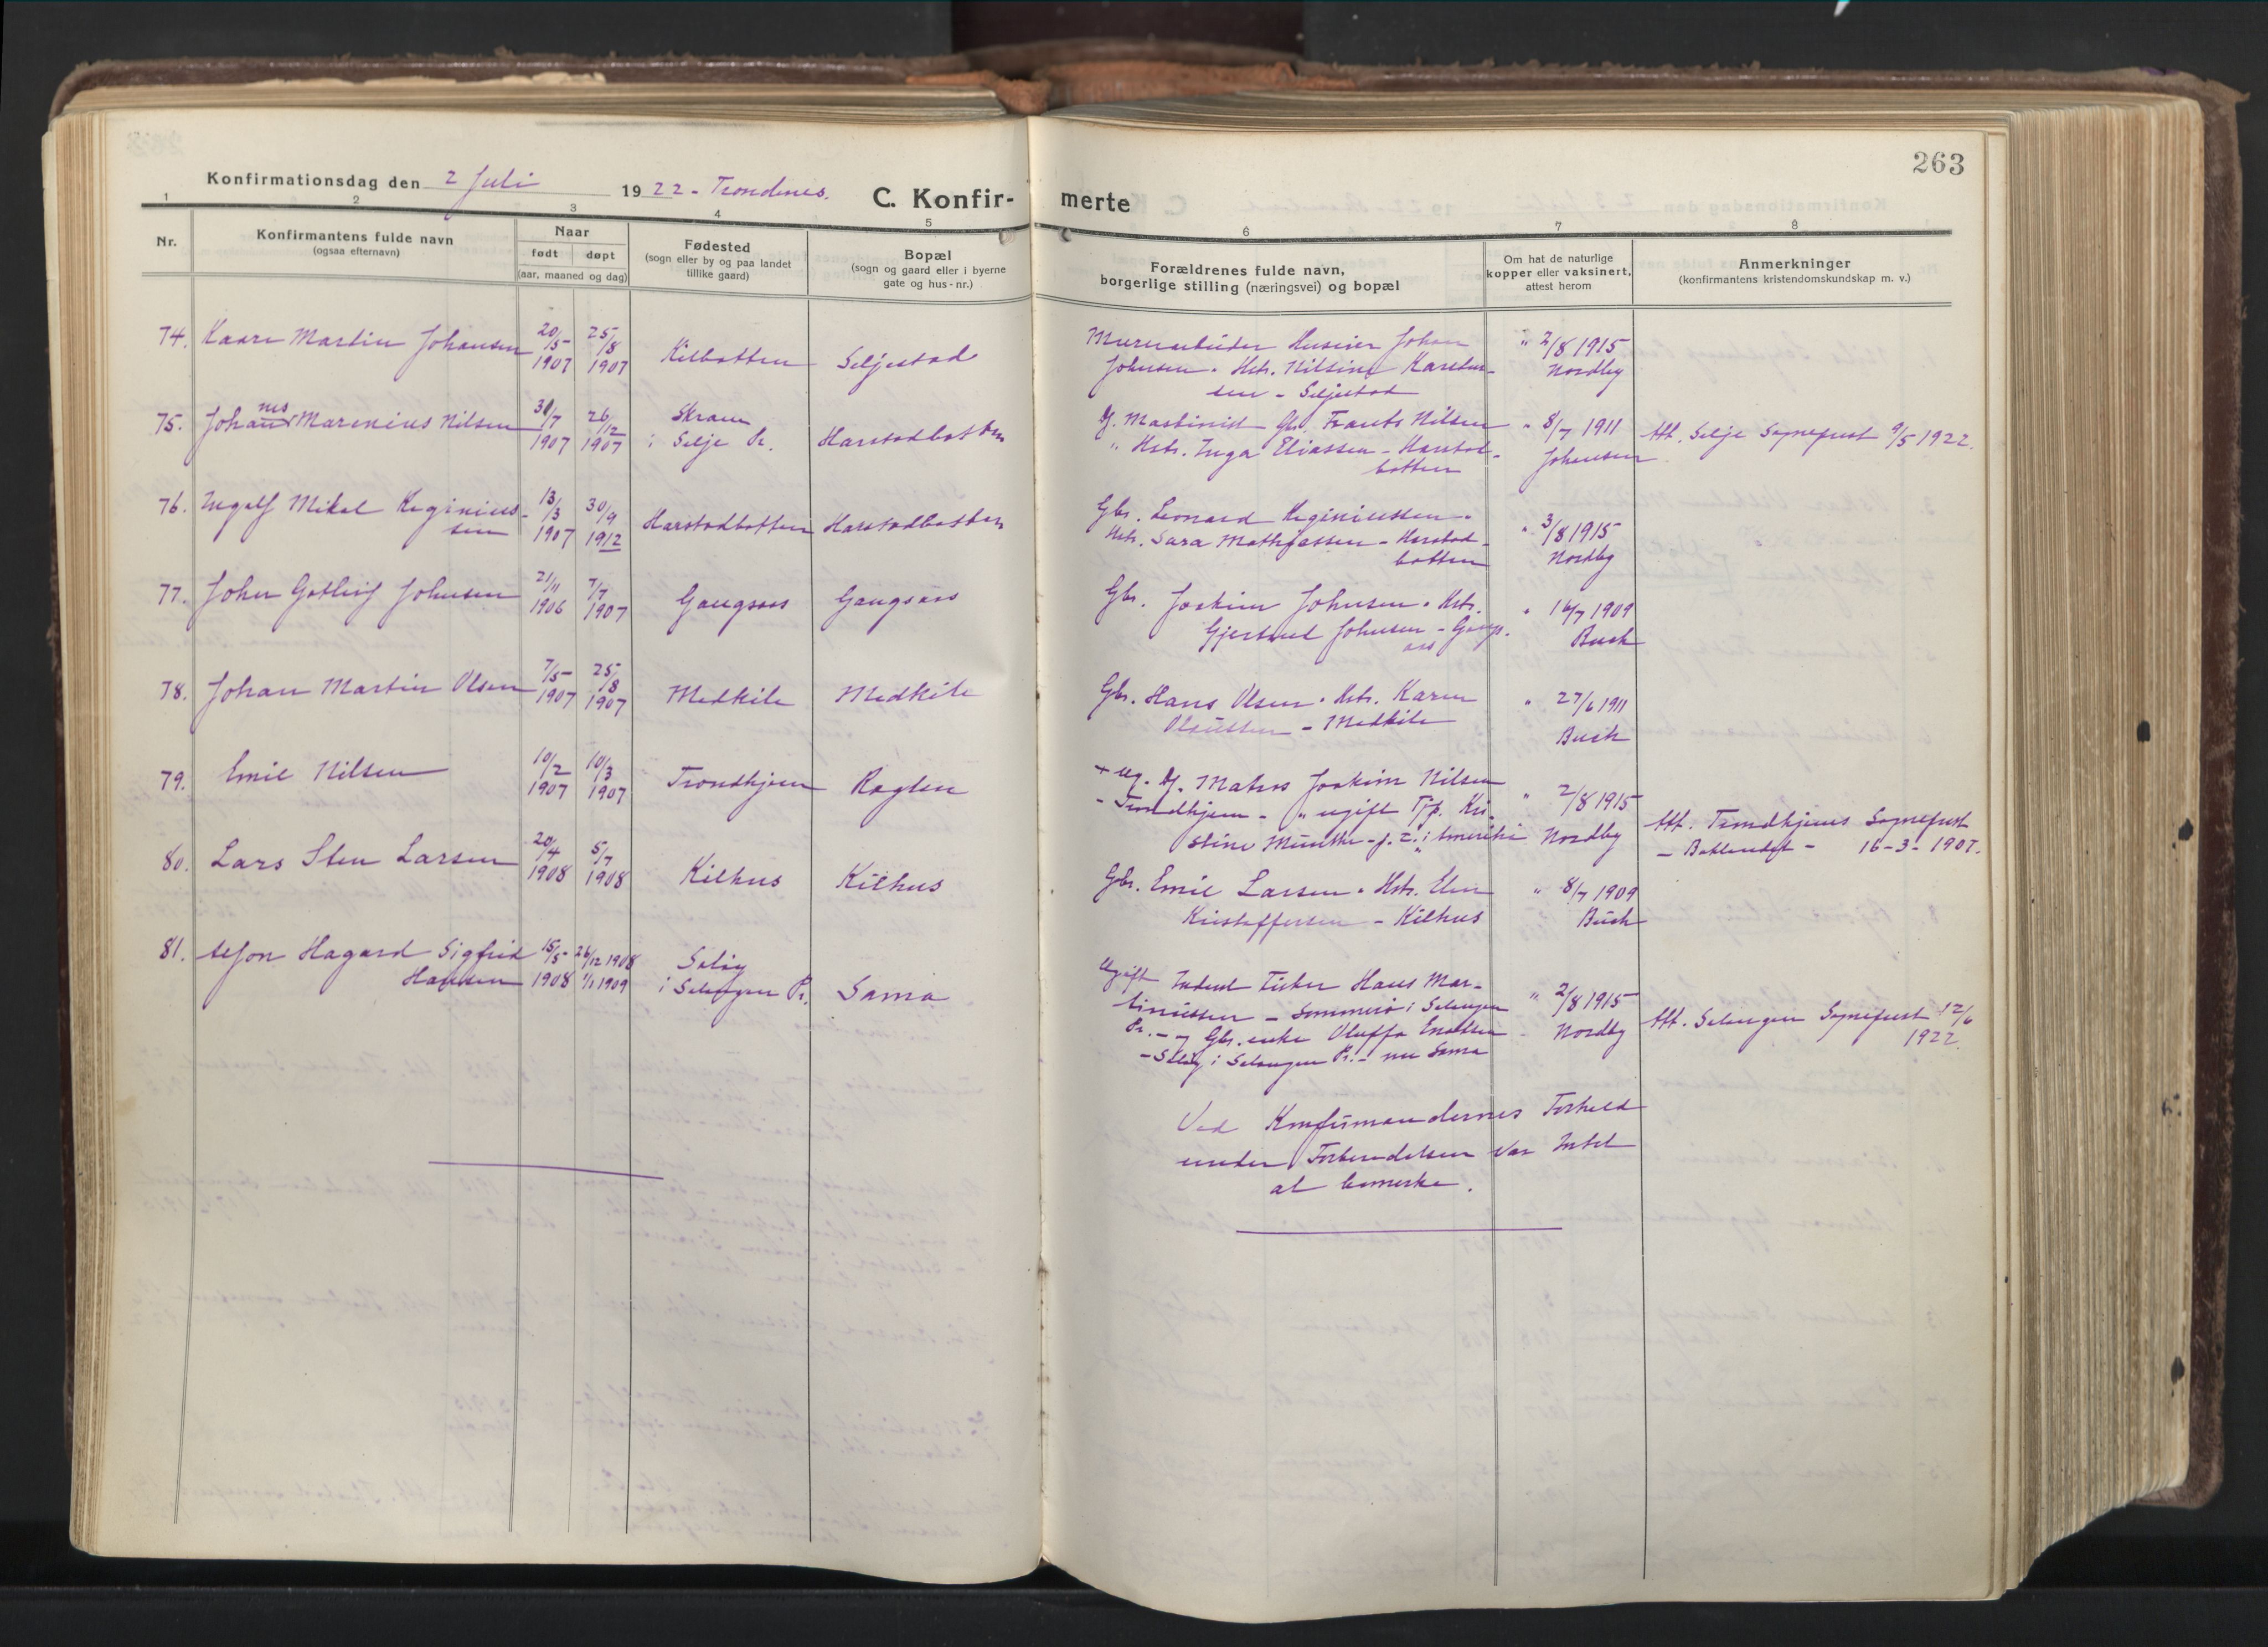 263
Konfirmationsdag den 2 Juli 1922 - Trondenes.
C. Konfir- merte
1 2 3 4 5 6 7 8
Nr.
Konfirmantens fulde navn
(ogsaa efternavn)
Naar
født døpt
(aar, maaned og dag)
Fødested
(sogn eller by og paa landet
tillike gaard)
Bopæl
(sogn og gaard eller i byerne
gate og hus-nr.)
Forældrenes fulde navn,
borgerlige stilling (næringsvei) og bopæl
Om hat de naturlige
kopper eller vaksinert,
attest herom
Anmerkninger
(konfirmantens kristendomskundskap m. v.)
74. Kaare Martin Johansen
20/5 1907
25/8 1907
Kilbotten
Seljestad
Murerarbeider Huseier Johan
Johnsen. Hstr. Nilsine Karsten-
sen - Seljestad
" 2/8 1915
Nordby
75. Johannes Marenius Nilsen
31/7 1907
26/12 1907
i Selje Pr.
Harstadbotten
fh. Maskinist Gbr. Frants Nilsen
" Hstr. Inga Eliassen - Harstad-
botten
" 8/7 1911
Johansen
Att. Selje Sogneprest 9/5 1922.
76. Ingolf Mikal Reginius-
sen
13/3 1907
30/9 1912
Harstadbotten
Harstadbotten
Gbr. Leonard Reginiussen.
Hstr. Sara Mathiassen - Harstad-
botten
" 3/8 1915
Nordby
77. Johan Gotlief Johnsen
21/11 1906
7/7 1907
Gangsaas
Gangsaas
Gbr. Joakim Johnsen. Hstr.
Gjertrud Johnsen - Gangs.
aas
" 16/7 1909
Buch
78. Johan Martin Olsen
7/5 1907
25/8 1907
Medkile
Medkile
Gbr. Hans Olsen. Hstr. Karen
Olaussen - Medkile
" 27/6 1911
Buch
79. Emil Nilsen
10/2 1907
10/3 1907
Trondhjem
Røglen
+ ug. fh. Matros Joakim Nilsen
- Trondhjem - " ugift Tjp. Kri-
stine - f. i Amerika
" 2/8 1915
Nordby
Att. Trondhjems Sogneprest
- Baklandet - 16-3-1907.
80. Lars Sten Larsen
20/4 1908
5/7 1908
Kilhus
Kilhus
Gbr. Emil Larsen. Hstr. Elen
Kristoffersen - Kilhus
" 8/7 1909
Buch
81. Hagard Sigfrid
Hansen
15/5 1908
26/12 1908
1/1 1909
Seløy
i Salangen Pr.
Sama
Ugift Inderst Fisker Hans Mar-
tinussen - Sommerø i Salangen
Pr. - og Gbr. enke Oluffa Enoksen
- Seløy i Salangen Pr. - nu Sama
" 2/8 1915
Nordby
Att. Salangen Sogneprest 12/6
1922.
Ved Konfirmandernes Forhold
under Forberedelsen var Intet
at bemerke.